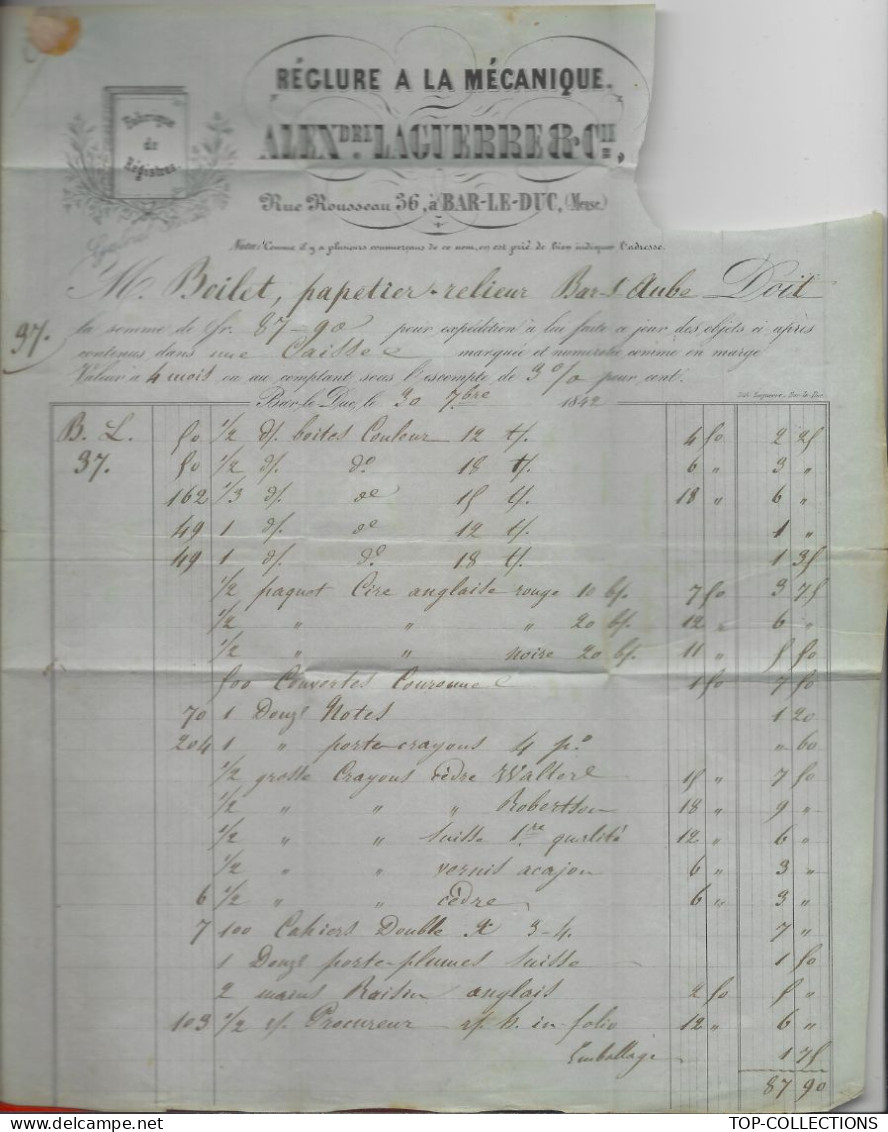 RÉGLURE A LA MÉCANIQUE.
Fabrique
de
Régistres
ALEX^DRE. LAGUERRE & C^IE,
Rue Rousseau 36, à BAR-LE-DUC, (Meuse.)
Nota: Comme il y a plusieurs commerçans de ce nom, on est prié de bien indiquer l'adresse.
M. Boilet, papetier-relieur Bar-s Aube Doit
97. la somme de fr. 87-90 pour expédition à lui faite ce jour des objets ci après
contenus dans une Caisse marquée et numérotée comme en marge
Valeur à 4 mois ou au comptant sous l'escompte de 3 % pour cent.
Bar-le-Duc, le 30 7bre 1842
B. L. 50 1/2 d/. boites Couleur 12 t/. 4 50 2 25
37. 50 1/2 d/. d° 18 t/. 6 " 3 "
162 1/3 d/. d° 15 t/. 18 " 6 "
49 1 d/. d° 12 t/. 1 "
49 1 d/. d° 18 t/. 1 35
1/2 paquet Cire anglaise rouge 10 b/. 7 50 3 75
1/2 " " " 20 b/. 12 " 6 "
1/2 " " noire 20 b/. 11 " 5 50
500 Couvertes Couronne 1 50 7 50
70 1 Douz^e Notes 1 20
204 1 " porte-crayons 4 p° " 60
1/2 grosse Crayons cèdre Walter 15 " 7 50
1/2 " " " Robertson 18 " 9 "
1/2 " " Suisse 1re qualité 12 " 6 "
1/2 " " vernis acajou 6 " 3 "
6 1/2 " " cèdre 6 " 3 "
7 100 Cahiers Double 3-4. 7 "
1 Douz^e porte-plumes Suisse 1 50
2 mains Raisin anglais 2 50 5 "
103 1/2 r/. Procureur in-folio 12 " 6 "
Emballage 1 75
87 90
TOP-COLLECTIONS